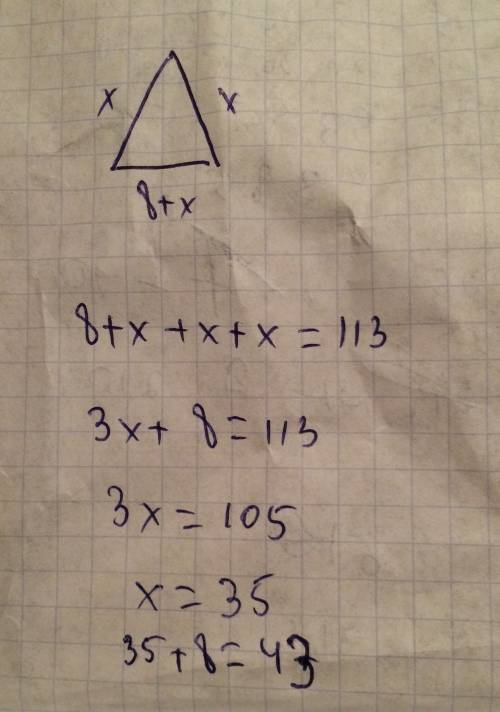 x x
8+x
8+x+x+x=113
3x+8=113
3x=105
x=35
35+8=43